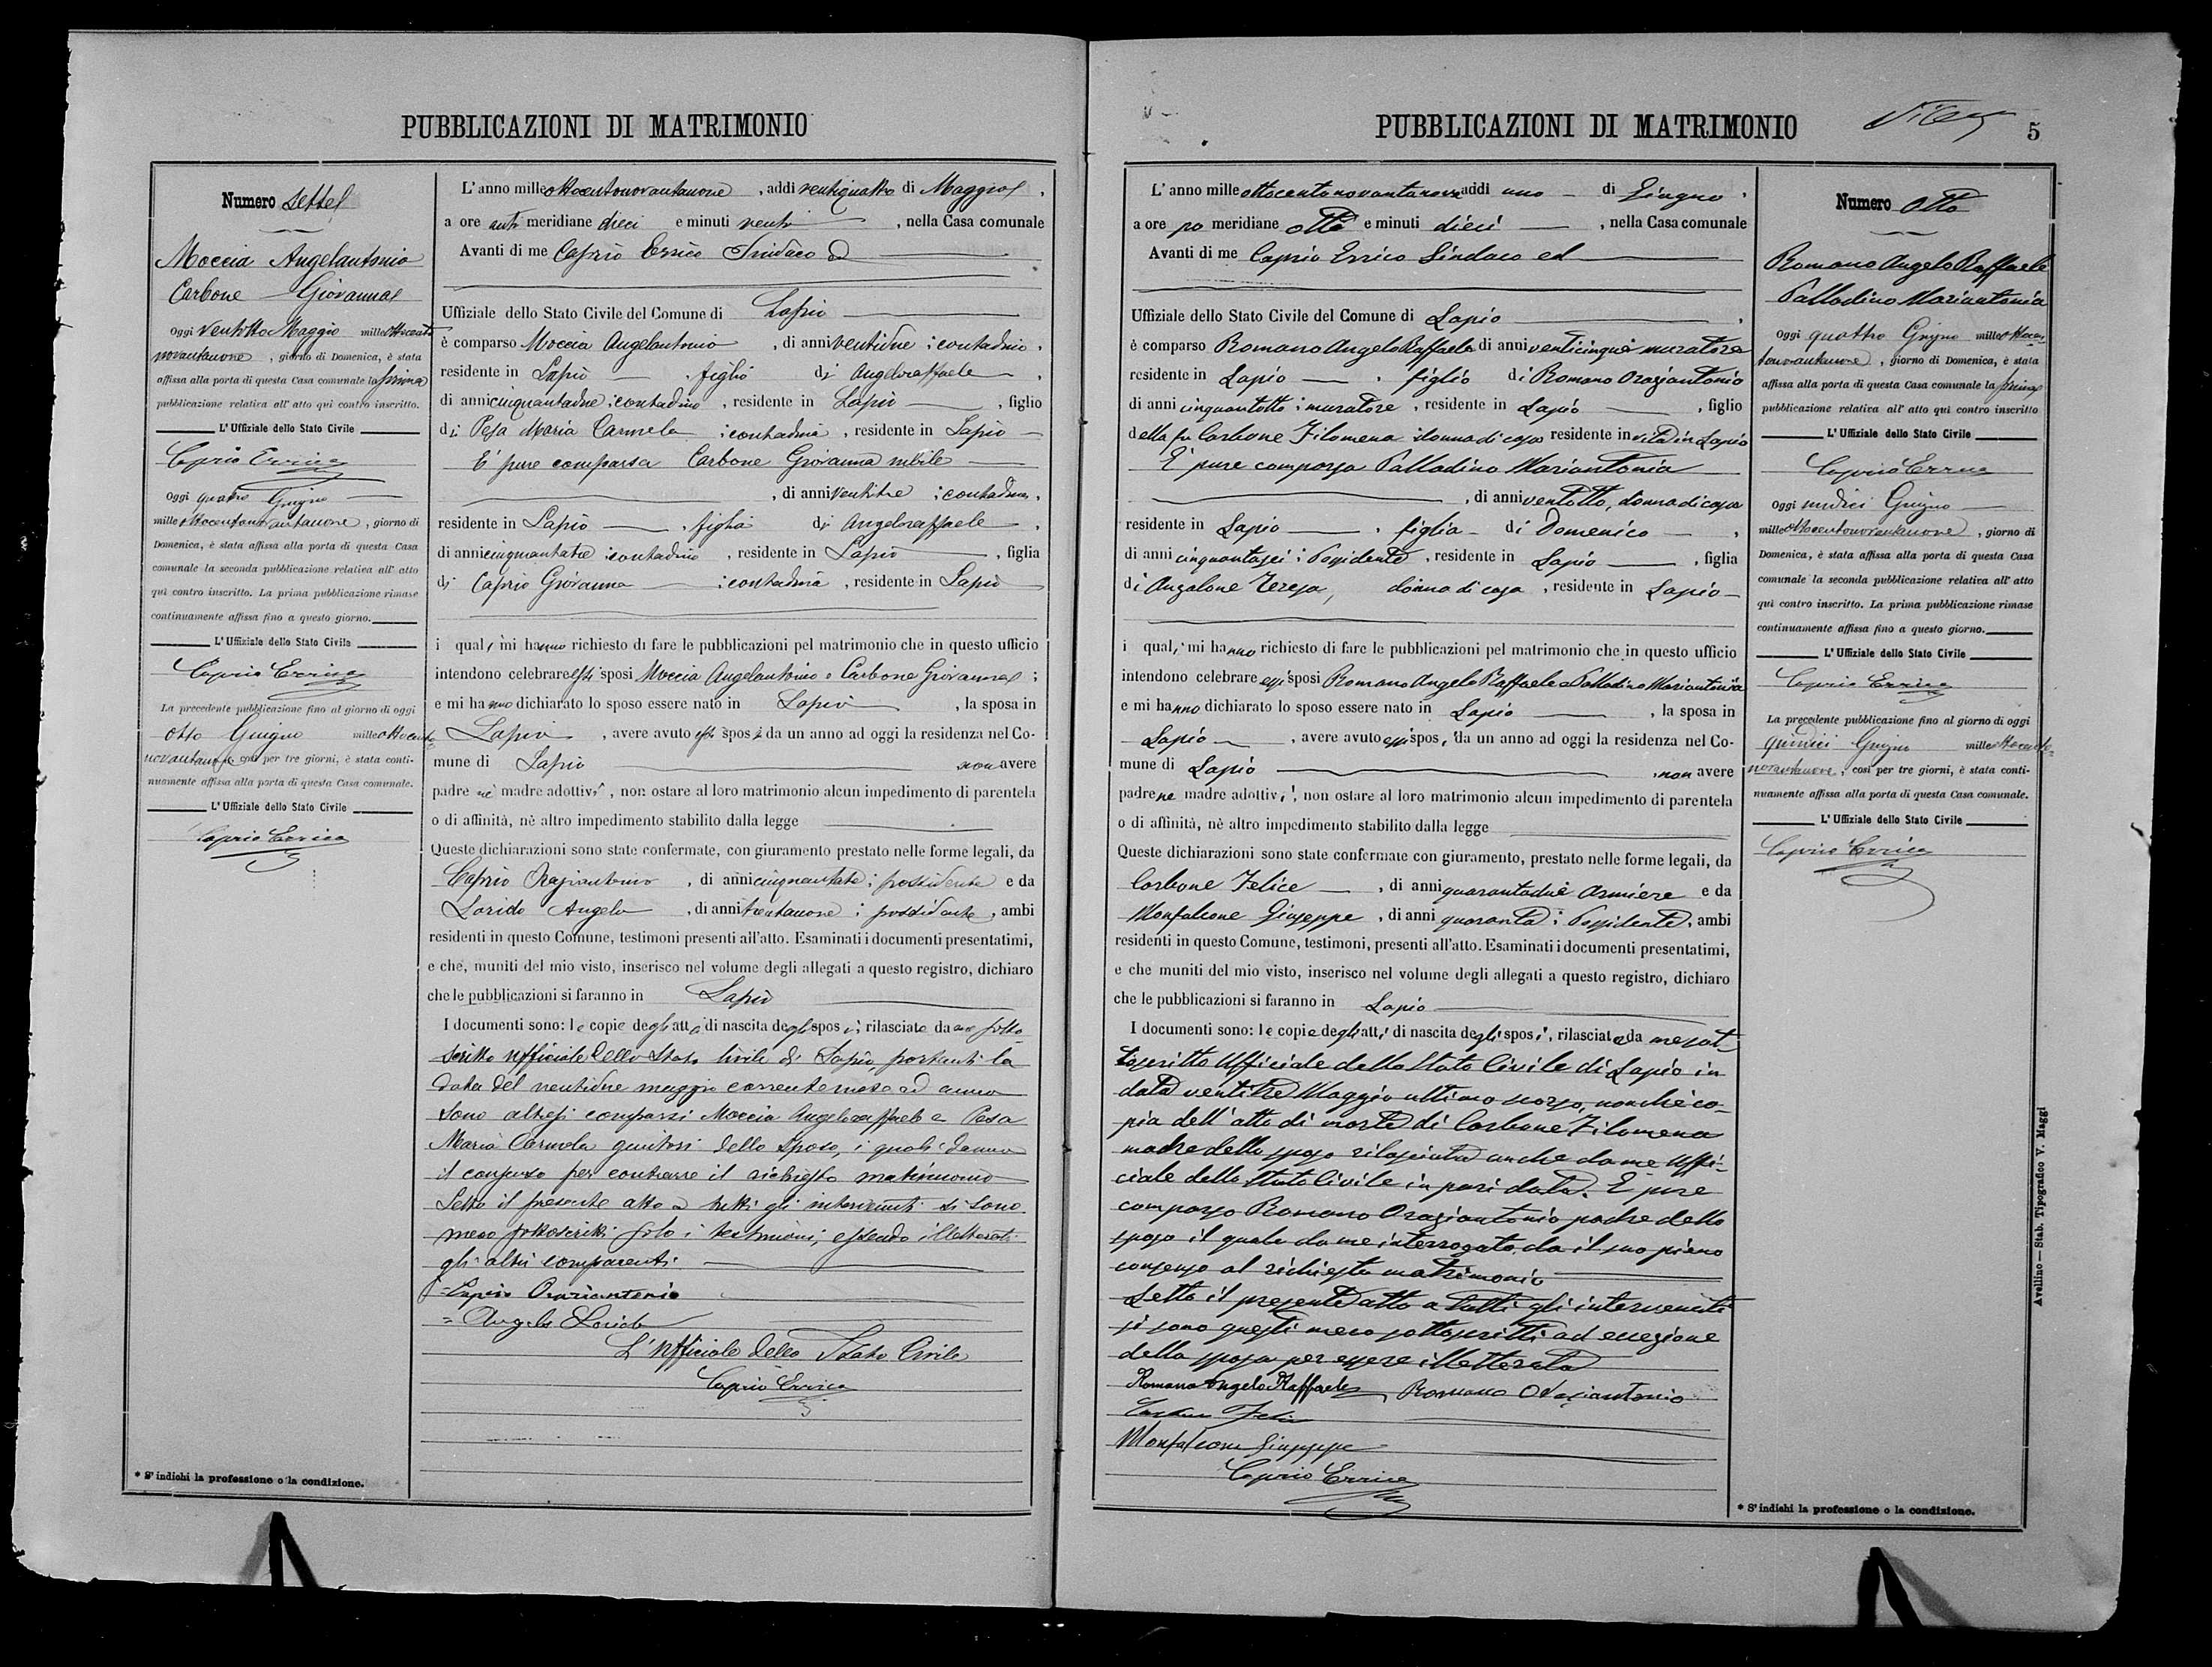 PUBBLICAZIONI DI MATRIMONIO
Numero sette
Moccia Angelantonio
Carbone Giovanna
Oggi ventotto Maggio milleottocento
novantanove, giorno di Domenica, è stata
affissa alla porta di questa Casa comunale la prima
pubblicazione relativa all' atto qui contro inscritto.
L' Uffiziale dello Stato Civile
Caprio Errico
Oggi quattro Giugno
milleottocentonovantanove, giorno di
Domenica, è stata affissa alla porta di questa Casa
comunale la seconda pubblicazione relativa all' atto
qui contro inscritto. La prima pubblicazione rimase
continuamente affissa fino a questo giorno.
L' Uffiziale dello Stato Civile
Caprio Errico
La precedente pubblicazione fino al giorno di oggi
otto Giugno milleottocento
novantanove, così per tre giorni, è stata conti-
nuamente affissa alla porta di questa Casa comunale.
L' Uffiziale dello Stato Civile
Caprio Errico
* S' indichi la professione o la condizione.
L' anno milleottocentonovantanove, addì ventiquattro di Maggio,
a ore anti meridiane dieci e minuti venti, nella Casa comunale
Avanti di me Caprio Errico Sindaco ed
Uffiziale dello Stato Civile del Comune di Lapio
è comparso Moccia Angelantonio, di anni ventidue; contadino,
residente in Lapio, figlio di Angeloraffaele,
di anni cinquantadue; contadino, residente in Lapio, figlio
di Pesa Maria Carmela; contadina, residente in Lapio
E' pure comparsa Carbone Giovanna nubile
, di anni ventitre; contadina,
residente in Lapio, figlia di Angeloraffaele,
di anni cinquantatre; contadino, residente in Lapio, figlia
di Caprio Giovanna; contadina, residente in Lapio
i quali mi hanno richiesto di fare le pubblicazioni pel matrimonio che in questo ufficio
intendono celebrare essi sposi Moccia Angelantonio e Carbone Giovanna;
e mi hanno dichiarato lo sposo essere nato in Lapio, la sposa in
Lapio, avere avuto essi sposi da un anno ad oggi la residenza nel Co-
mune di Lapio non avere
padre nè madre adottivi, non ostare al loro matrimonio alcun impedimento di parentela
o di affinità, nè altro impedimento stabilito dalla legge
Queste dichiarazioni sono state confermate, con giuramento prestato nelle forme legali, da
Caprio Oraziantonio, di anni; possidente e da
Lorido Angelo, di anni trentanove; possidente, ambi
residenti in questo Comune, testimoni presenti all'atto. Esaminati i documenti presentatimi,
e che, muniti del mio visto, inserisco nel volume degli allegati a questo registro, dichiaro
che le pubblicazioni si faranno in Lapio
I documenti sono: le copie degli atti di nascita degli sposi; rilasciate da me sotto
scritto ufficiale dello Stato Civile di Lapio, portanti la
data del ventidue maggio corrente mese ed anno
Sono altresi comparsi Moccia Angeloraffaele e Pesa
Maria Carmela genitori dello sposo, i quali danno
il consenso per contrarre il richiesto matrimonio
Letto il presente atto a tutti gli intervenuti si sono
meco sottoscritti solo i testimoni, essendo illetterati
gli altri comparenti.
= Caprio Oraziantonio
= Angelo Lorido
L' ufficiale dello Stato Civile
Caprio Errico
PUBBLICAZIONI DI MATRIMONIO
5
L' anno milleottocentonovantanove addì uno di Giugno,
a ore po meridiane otto e minuti dieci, nella Casa comunale
Avanti di me Caprio Errico Sindaco ed
Uffiziale dello Stato Civile del Comune di Lapio,
è comparso Romano Angelo Raffaele di anni venticinque muratore
residente in Lapio, figlio di Romano Oraziantonio
di anni cinquantotto; muratore, residente in Lapio, figlio
della fu Carbone Filomena donna di casa residente in vita in Lapio
E' pure comparsa Palladino Mariantonia
, di anni ventotto, donna di casa
residente in Lapio, figlia di Domenico,
di anni cinquantasei; Possidente, residente in Lapio, figlia
di Anzalone Teresa, donna di casa, residente in Lapio
i quali mi hanno richiesto di fare le pubblicazioni pel matrimonio che in questo ufficio
intendono celebrare essi sposi Romano Angelo Raffaele e Palladino Mariantonia
e mi hanno dichiarato lo sposo essere nato in Lapio, la sposa in
Lapio, avere avuto essi sposi da un anno ad oggi la residenza nel Co-
mune di Lapio, non avere
padre ne madre adottivi, non ostare al loro matrimonio alcun impedimento di parentela
o di affinità, nè altro impedimento stabilito dalla legge
Queste dichiarazioni sono state confermate con giuramento, prestato nelle forme legali, da
Carbone Felice, di anni quarantadue Armiere e da
Monfalcone Giuseppe, di anni quaranta; Possidente, ambi
residenti in questo Comune, testimoni, presenti all'atto. Esaminati i documenti presentatimi,
e che muniti del mio visto, inserisco nel volume degli allegati a questo registro, dichiaro
che le pubblicazioni si faranno in Lapio
I documenti sono: le copie degli atti di nascita degli sposi, rilasciate da me sot
toscritto Ufficiale dello Stato Civile di Lapio in
data ventitre Maggio ultimo scorso, nonchè co-
pia dell' atto di morte di Carbone Filomena
madre dello sposo rilasciata anche da me Uffi-
ciale dello Stato Civile in pari data. E pure
comparso Romano Oraziantonio padre dello
sposo il quale da me interrogato da il suo pieno
consenso al richiesto matrimonio
Letto il presente atto a tutti gli intervenuti
si sono questi meco sottoscritti ad eccezione
della sposa per essere illetterata
Romano Angelo Raffaele Romano Oraziantonio
Carbone Felice
Monfalcone Giuseppe
Caprio Errico
Numero otto
Romano Angelo Raffaele
Palladino Mariantonia
Oggi quattro Giugno milleottocen
tonovantanove, giorno di Domenica, è stata
affissa alla porta di questa Casa comunale la prima
pubblicazione relativa all' atto qui contro inscritto
L' Uffiziale dello Stato Civile
Caprio Errico
Oggi undici Giugno
milleottocentonovantanove, giorno di
Domenica, è stata affissa alla porta di questa Casa
comunale la seconda pubblicazione relativa all' atto
qui contro inscritto. La prima pubblicazione rimase
continuamente affissa fino a questo giorno.
L' Uffiziale dello Stato Civile
Caprio Errico
La precedente pubblicazione fino al giorno di oggi
quindici Giugno milleottocento-
novantanove, così per tre giorni, è stata conti-
nuamente affissa alla porta di questa Casa comunale.
L' Uffiziale dello Stato Civile
Caprio Errico
* S' indichi la professione o la condizione.
Avellino — Stab. Tipografico V. Maggi